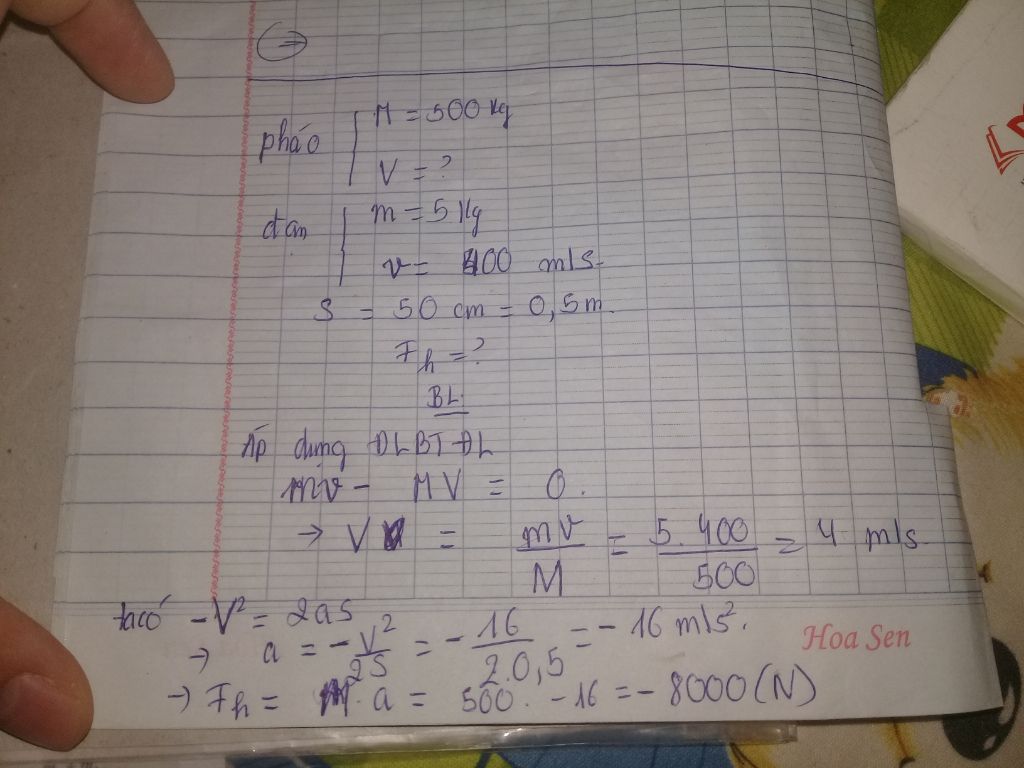 ⇒
pháo M = 500 kg
V = ?
đạn m = 5 kg
v = 400 m/s.
S = 50 cm = 0,5 m.
Fh = ?
BL
Áp dụng ĐLBTĐL
mv - MV = 0.
→ V = mv/M = 5.400/500 = 4 m/s.
ta có - V² = 2as
→ a = -V²/2S = -16/2.0,5 = -16 m/s².
→ Fh = M.a = 500. -16 = -8000 (N)
Hoa Sen